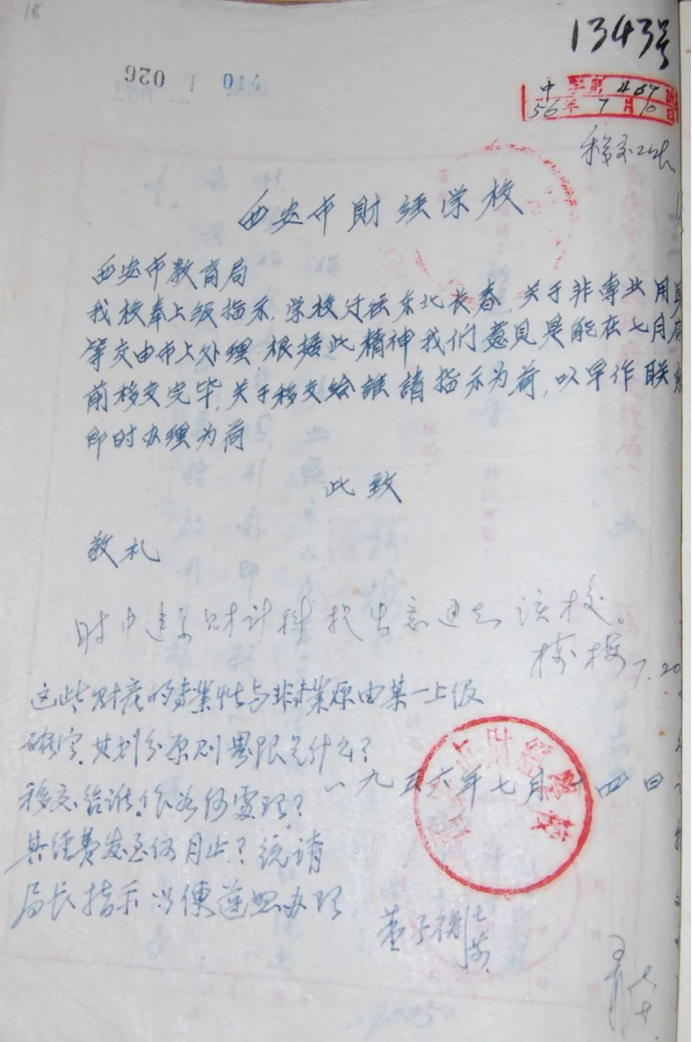 18
1343号
026 1 014
中字第469号
56年7月10日
西安市財经学校
西安市教育局
我校奉上级指示,学校迁往东北长春,关于非专业用具
等交由市上处理,根据此精神我们意见是能在七月底
前移交完毕,关于移交给誰請指示为荷,以早作联系
即时办理为荷
此致
敬礼
财计科 意 该校。
7.20
这些财产的专业性与非专业原由某一上级
确定,其划分原则界限是什么?
一九五六年七月十四日
移交给谁,作如何处理?
其经费发至何月止?统请
局长指示以便遵照办理
董子
西安市财经学校